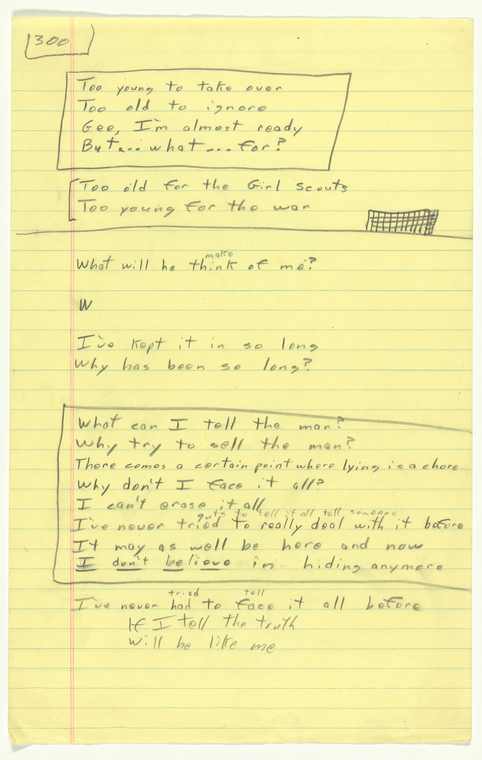 300
Too young to take over
Too old to ignore
Gee, I'm almost ready
But... what... for?
Too old for the Girl Scouts
Too young for the war
make
What will he think of me?
W
I've kept it in so long
Why has been so long?
What can I tell the man?
Why try to sell the man?
There comes a certain point where lying is a chore
Why don't I face it all?
I can't erase it all
guts to tell it all tell someone
I've never tried to really deal with it before
It may as well be here and now
I don't believe in hiding anymore
tried tell
I've never had to face it all before
If I tell the truth
Will he like me